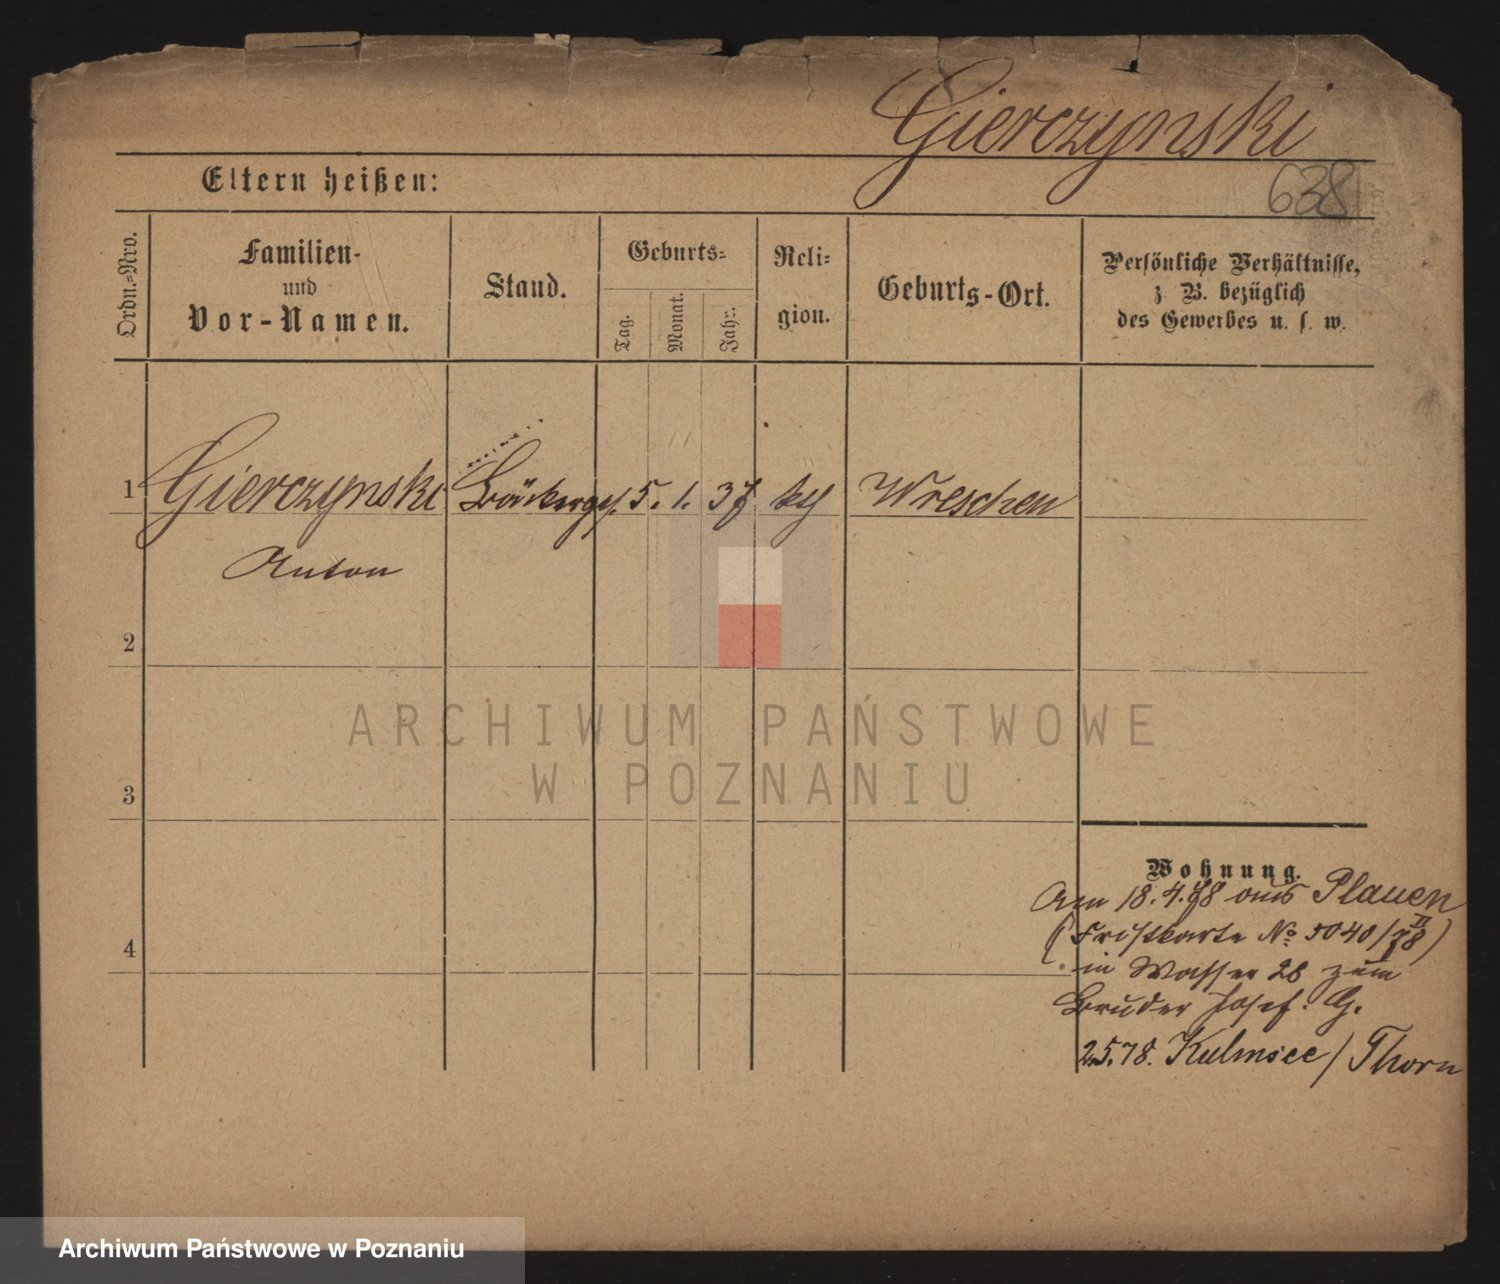 Gierczynski
Eltern heißen:
638
Ordn.-Nro.
Familien-
und
Vor-Namen.
Stand.
Geburts-
Tag.
Monat.
Jahr.
Reli-
gion.
Geburts-Ort.
Persönliche Verhältnisse,
z. B. bezüglich
des Gewerbes u. s. w.
1 Gierczynski Bäckerges. 5. 1. 37 kth Wreschen
Anton
2
ARCHIWUM PAŃSTWOWE
W POZNANIU
3
Wohnung.
Am 18.4.78 aus Plauen
(Fristkarte № 5040/78 II)
4
in Wasser 28 zum
Bruder Josef. G.
2.5.78. Kulmsee / Thorn
Archiwum Państwowe w Poznaniu